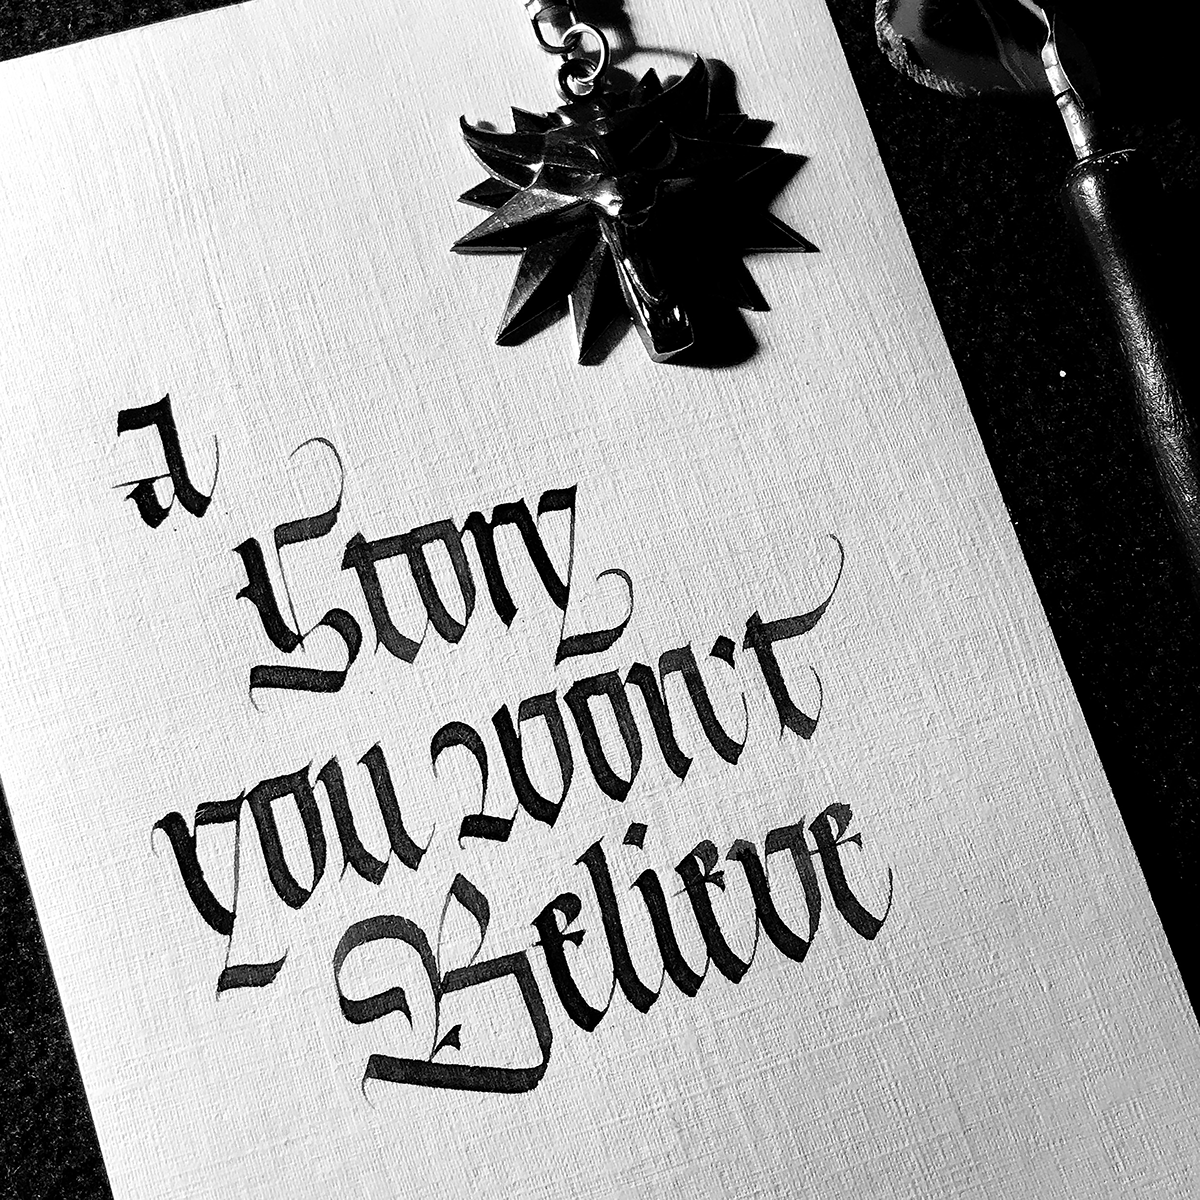 a
Story
you won't
Believe